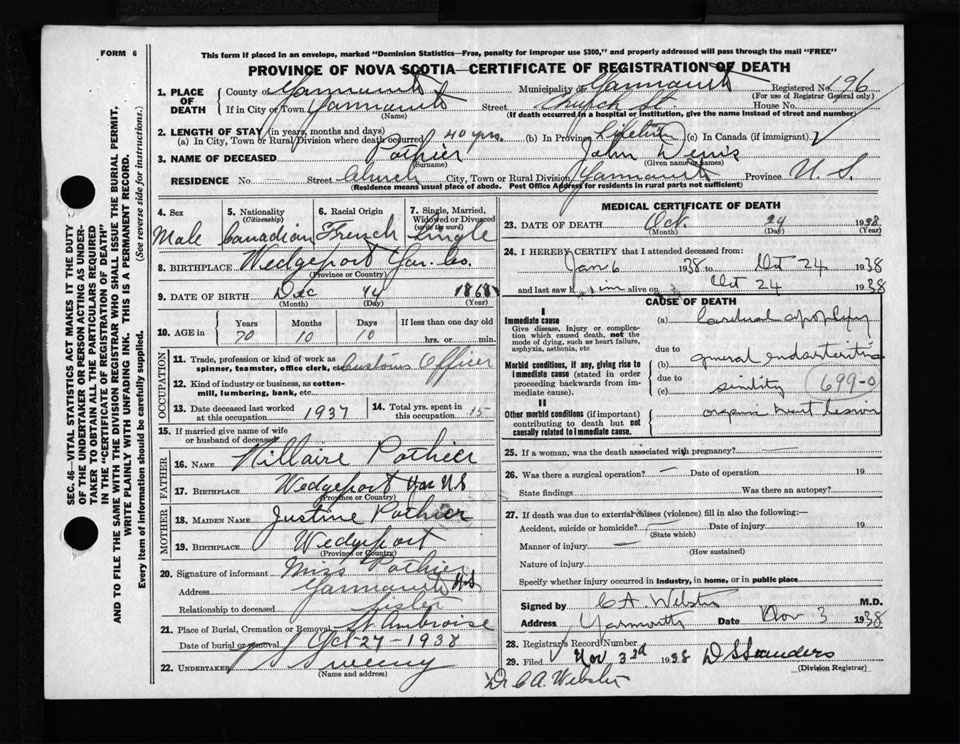 FORM 6
This form if placed in an envelope, marked "Dominion Statistics—Free, penalty for improper use $300," and properly addressed will pass through the mail "FREE"
PROVINCE OF NOVA SCOTIA—CERTIFICATE OF REGISTRATION OF DEATH
SEC. 46—VITAL STATISTICS ACT MAKES IT THE DUTY
OF THE UNDERTAKER OR PERSON ACTING AS UNDER-
TAKER TO OBTAIN ALL THE PARTICULARS REQUIRED
IN THE "CERTIFICATE OF REGISTRATION OF DEATH"
AND TO FILE THE SAME WITH THE DIVISION REGISTRAR WHO SHALL ISSUE THE BURIAL PERMIT.
WRITE PLAINLY WITH UNFADING INK. THIS IS A PERMANENT RECORD.
Every item of information should be carefully supplied. (See reverse side for instructions.)
1. PLACE OF DEATH
County of Yarmouth Municipality of Yarmouth Registered No. 196
(For use of Registrar General only)
If in City or Town Yarmouth Street Church St. House No.
(Name) (If death occurred in a hospital or institution, give the name instead of street and number)
2. LENGTH OF STAY (in years, months and days)
(a) In City, Town or Rural Division where death occurred 40 yrs. (b) In Province Lifetime (c) In Canada (if immigrant)
3. NAME OF DECEASED Pothier John Denis
(Surname) (Given name or names)
RESIDENCE No. Street Church City, Town or Rural Division Yarmouth Province N. S.
(Residence means usual place of abode. Post Office Address for residents in rural parts not sufficient)
4. Sex Male
5. Nationality (Citizenship) Canadian
6. Racial Origin French
7. Single, Married, Widowed or Divorced (write the word) Single
8. BIRTHPLACE Wedgeport Yar. Co.
(Province or Country)
9. DATE OF BIRTH Dec 14 1868
(Month) (Day) (Year)
10. AGE in Years Months Days If less than one day old
70 10 10 hrs. or min.
OCCUPATION
11. Trade, profession or kind of work as spinner, teamster, office clerk, etc. Customs Officer
12. Kind of industry or business, as cotton-mill, lumbering, bank, etc.
13. Date deceased last worked at this occupation 1937
14. Total yrs. spent in this occupation 15
15. If married give name of wife or husband of deceased
FATHER
16. NAME Hillaire Pothier
17. BIRTHPLACE Wedgeport Yar N S
(Province or Country)
MOTHER
18. MAIDEN NAME Justine Pothier
19. BIRTHPLACE Wedgeport
(Province or Country)
20. Signature of informant Miss Pothier
Address Yarmouth N S
Relationship to deceased sister
21. Place of Burial, Cremation or Removal St. Ambroise
Date of burial or removal Oct-27-1938
22. UNDERTAKER Sweeny
(Name and address)
MEDICAL CERTIFICATE OF DEATH
23. DATE OF DEATH Oct. 24 1938
(Month) (Day) (Year)
24. I HEREBY CERTIFY that I attended deceased from:
Jan 6 1938 to Oct 24 1938
and last saw him alive on Oct 24 1938
CAUSE OF DEATH
I
Immediate cause
Give disease, injury or complication which caused death, not the mode of dying, such as heart failure, asphyxia, asthenia, etc
(a) Cerebral apoplexy
due to
Morbid conditions, if any, giving rise to immediate cause (stated in order proceeding backwards from immediate cause).
(b) general endarteritis
due to
(c) senility (699-0)
II
Other morbid conditions (if important) contributing to death but not causally related to immediate cause.
organic heart lesion
25. If a woman, was the death associated with pregnancy?
26. Was there a surgical operation? Date of operation 19
State findings Was there an autopsy?
27. If death was due to external causes (violence) fill in also the following:—
Accident, suicide or homicide? Date of injury 19
(State which)
Manner of injury
(How sustained)
Nature of injury
Specify whether injury occurred in industry, in home, or in public place
Signed by C A Webster M.D.
Address Yarmouth Date Nov 3 1938
28. Registrar's Record Number
29. Filed Nov 3rd 1938 D S Saunders
(Division Registrar)
Dr. C. A. Webster